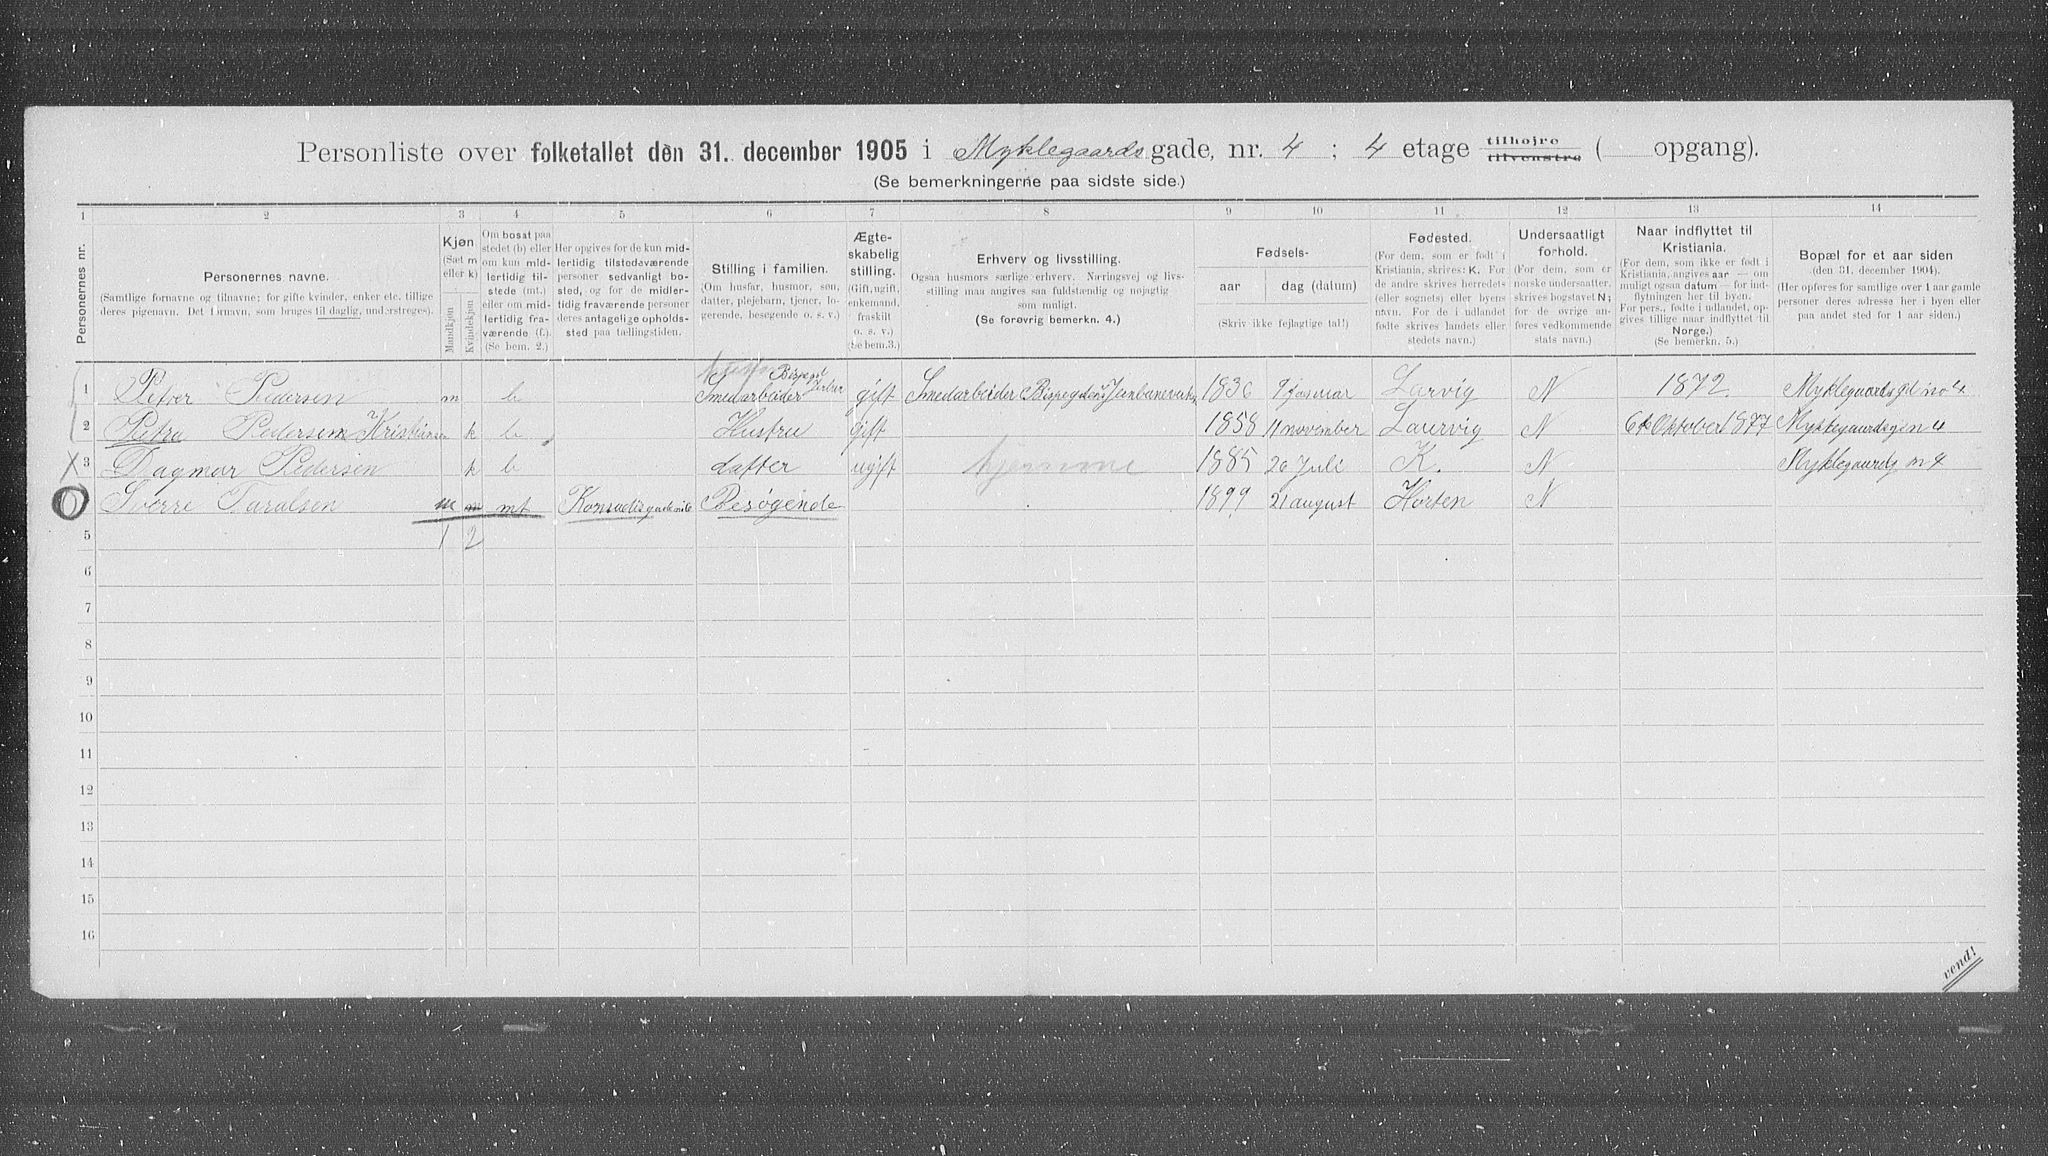 Personliste over folketallet den 31. december 1905 i Myklegaards gade, nr. 4 ; 4 etage tilhøjre tilvenstre ( opgang).
(Se bemerkningerne paa sidste side.)
1 2 3 4 5 6 7 8 9 10 11 12 13 14
Personernes nr.
Personernes navne.
(Samtlige fornavne og tilnavne; for gifte kvinder, enker etc. tillige
deres pigenavn. Det fornavn, som bruges til daglig, understreges).
Kjøn
(Sæt m
eller k)
Mandkjøn
Kvindekjøn
Om bosat paa
stedet (b) eller
om kun mid-
lertidig til-
stede (mt.)
eller om mid-
lertidig fra-
værende (f.)
(Se bem. 2.)
Her opgives for de kun mid-
lertidig tilstedeværende
personer sedvanligt bo-
sted, og for de midler-
tidig fraværende personer
deres antagelige opholds-
sted paa tællingstiden.
Stilling i familien.
(Om husfar, husmor, søn,
datter, plejebarn, tjener, lo-
gerende, besøgende o. s. v.)
Ægte-
skabelig
stilling.
(Gift, ugift,
enkemand,
fraskilt
o. s. v.)
(Se bem.3.)
Erhverv og livsstilling.
Ogsaa husmors særlige erhverv. Næringsvej og livs-
stilling maa angives saa fuldstændig og nøjagtig
som muligt.
(Se forøvrig bemerkn. 4.)
Fødsels-
aar dag (datum)
(Skriv ikke fejlagtige tal!)
Fødested.
(For dem, som er født i
Kristiania, skrives: K. For
de andre skrives herredets
(eller sognets) eller byens
navn. For de i udlandet
fødte skrives landets eller
stedets navn.)
Undersaatligt
forhold.
(For dem, som er
norske undersaatter,
skrives bogstavet N;
for de øvrige an-
føres vedkommende
stats navn.)
Naar indflyttet til
Kristiania.
(For dem, som ikke er født i
Kristiania, angives aar — om
muligt ogsaa datum — for ind-
flytningen her til byen.
For pers., fødte i udlandet, op-
gives tillige naar indflyttet til
Norge.)
(Se bemerkn. 5.)
Bopæl for et aar siden
(den 31. december 1904).
(Her opføres for samtlige over 1 aar gamle
personer deres adresse her i byen eller
paa andet sted for 1 aar siden.)
1 Petter Pedersen m b Smedarbeider gift Smedarbeider Bispegadens Jernbaneverksted 1836 9 januar Larvig N 1872. Myklegaards gd no 4
2 Petra Pedersen Kristiansen k b Hustru gift 1858 11 november Laurvig N 6te Oktober 1877 Myklegaardsgen 4
3 Dagmar Pedersen k b datter ugift hjemme 1885 20 Juli K. N Myklegaardg n 4
Sverre Taralsen m m mt Besøgende 1899 21 august Horten N
5 1 2
6
7
8
9
10
11
12
13
14
15
16
vend!